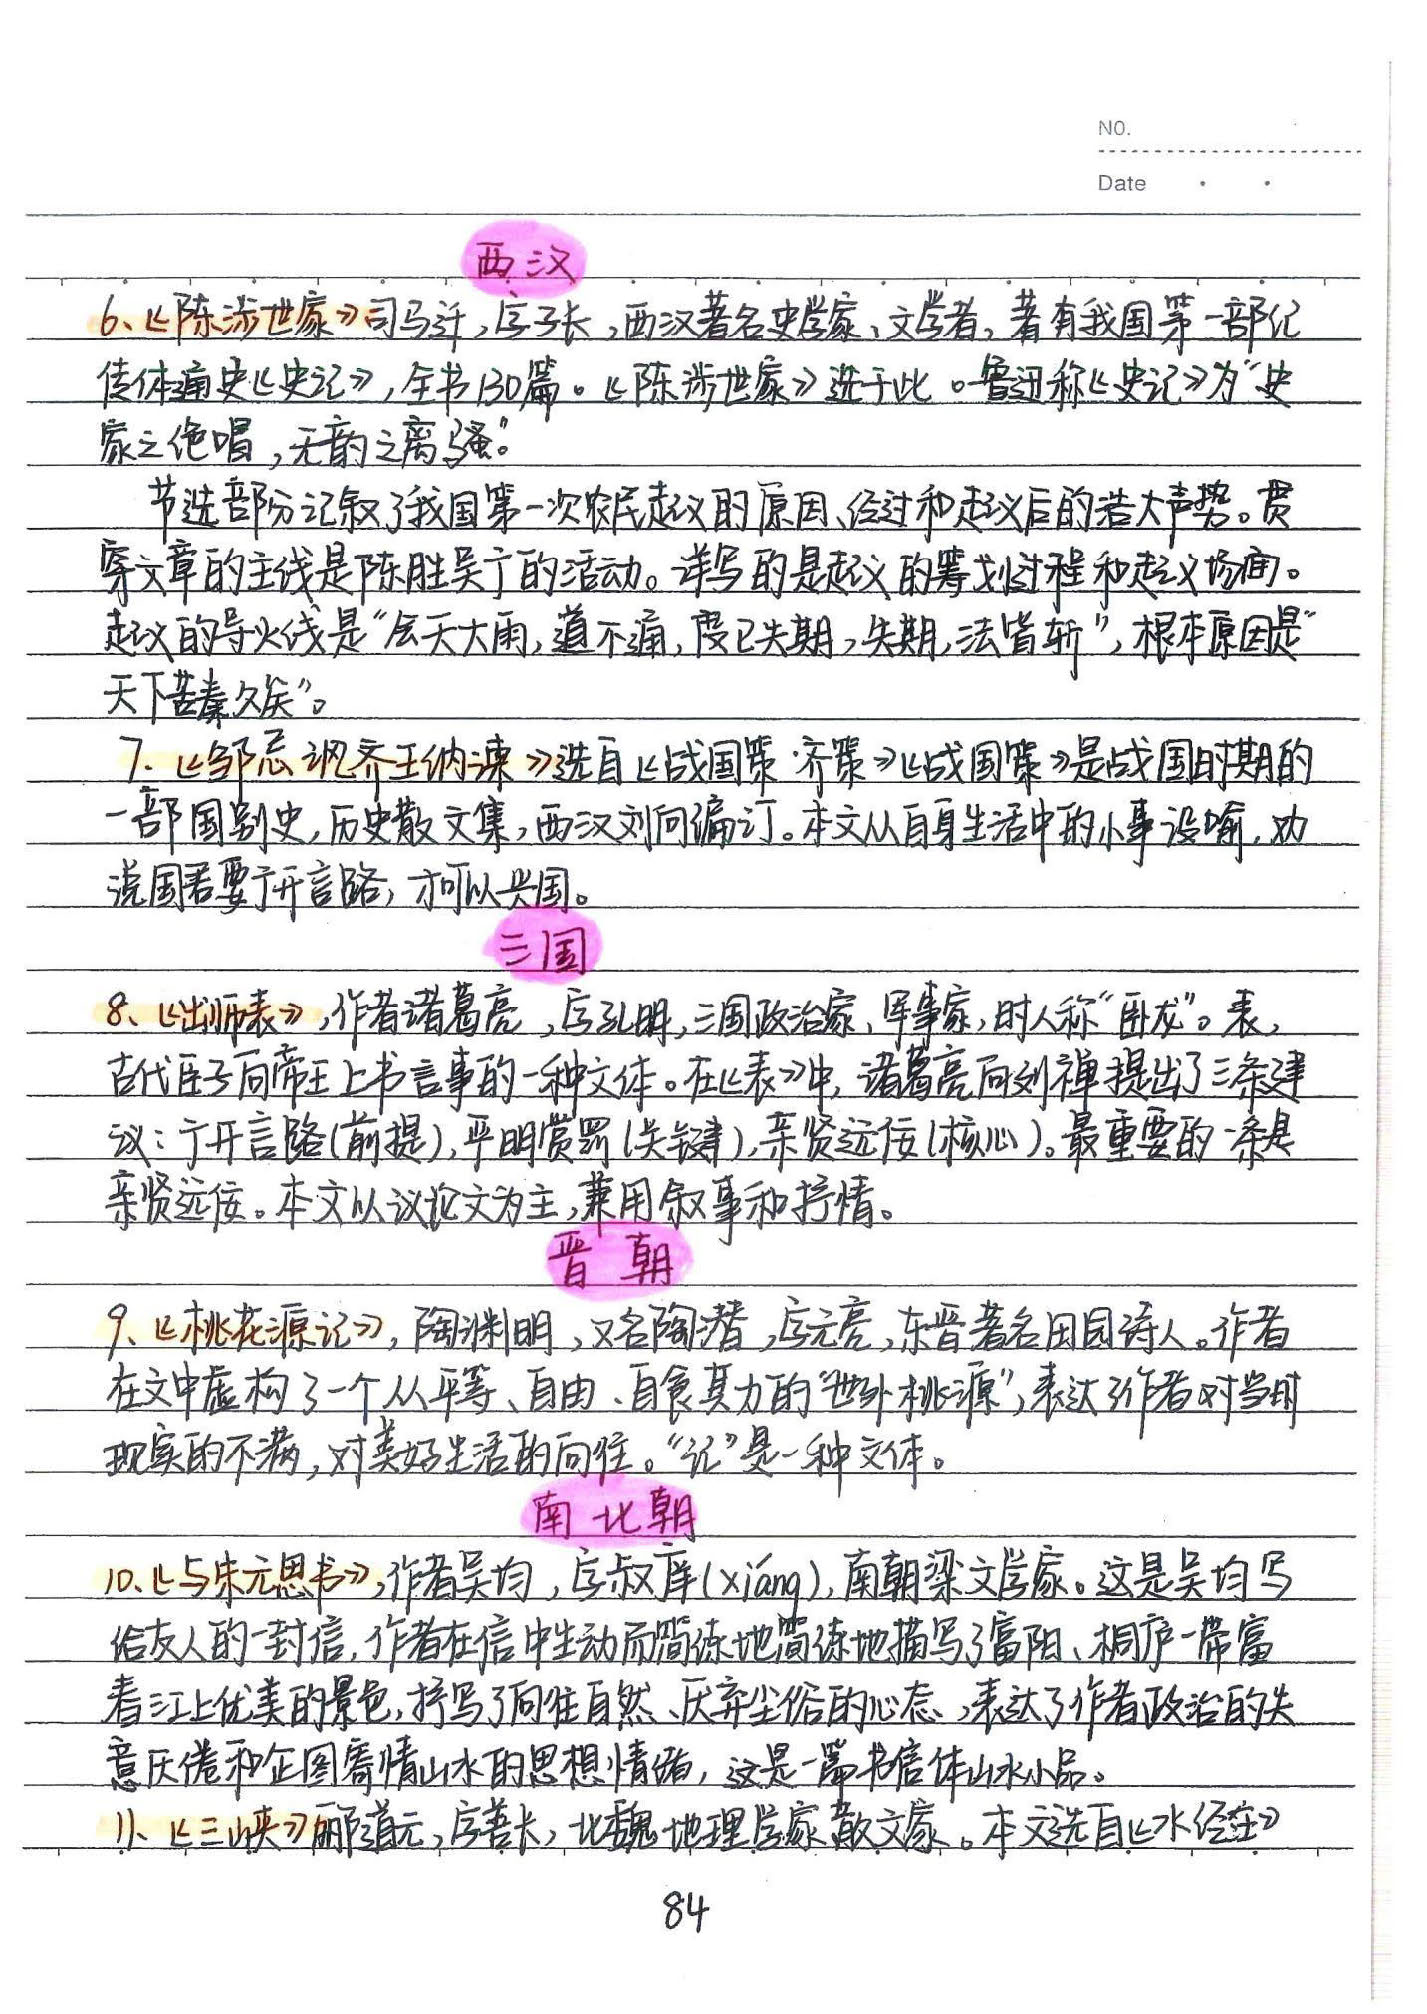 NO.
Date
西汉
6、《陈涉世家》司马迁,字子长,西汉著名史学家、文学者,著有我国第一部纪
传体通史《史记》,全书130篇。《陈涉世家》选于此。鲁迅称《史记》为"史
家之绝唱,无韵之离骚"。
节选部分记叙了我国第一次农民起议的原因、经过和起议后的浩大声势。贯
穿文章的主线是陈胜吴广的活动。详写的是起议的筹划过程和起义场面。
起议的导火线是"会天大雨,道不通,度已失期,失期,法皆斩",根本原因是"
天下苦秦久矣"。
7、《邹忌讽齐王纳谏》选自《战国策·齐策》《战国策》是战国时期的
一部国别史,历史散文集,西汉刘向编订。本文从自身生活中的小事设喻,劝
说国君要广开言路,才可以兴国。
三国
8、《出师表》,作者诸葛亮,字孔明,三国政治家,军事家,时人称"卧龙"。表,
古代臣子向帝王上书言事的一种文体。在《表》中,诸葛亮向刘禅提出了三条建
议:广开言路(前提),平明赏罚(关键),亲贤远佞(核心)。最重要的一条是
亲贤远佞。本文以议论文为主,兼用叙事和抒情。
晋朝
9、《桃花源记》,陶渊明,又名陶潜,字元亮,东晋著名田园诗人。作者
在文中虚构了一个人人平等、自由、自食其力的"世外桃源",表达了作者对当时
现实的不满,对美好生活的向往。"记"是一种文体。
南北朝
10、《与朱元思书》,作者吴均,字叔庠(xiáng),南朝梁文学家。这是吴均写
给友人的一封信,作者在信中生动而简练地简练地描写了富阳、桐庐一带富
春江上优美的景色,抒写了向往自然、厌弃尘俗的心态,表达了作者政治的失
意厌倦和企图寄情山水的思想情绪,这是一篇书信体山水小品。
11、《三峡》郦道元,字善长,北魏地理学家散文家。本文选自《水经注》
84